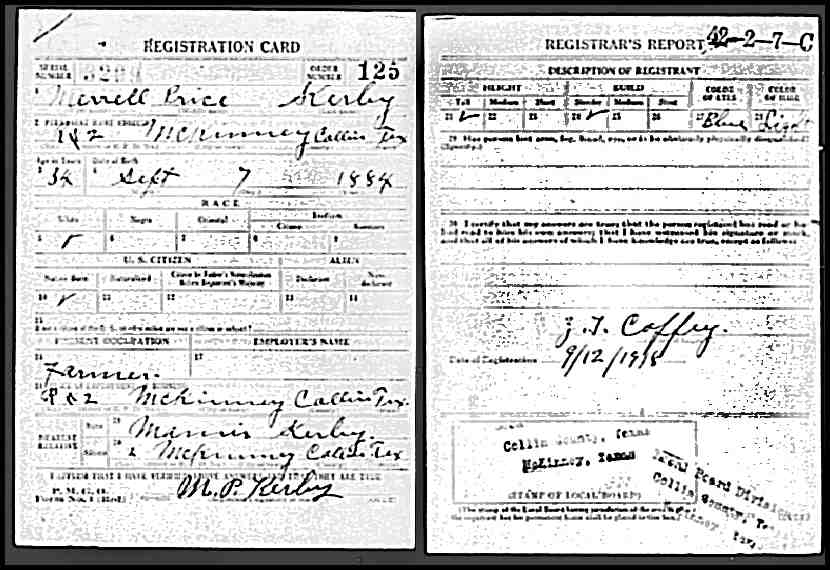 REGISTRATION CARD
SERIAL NUMBER 3299 ORDER NUMBER 125
1 Merrell Price Kerby
2 PERMANENT HOME ADDRESS
R & 2 McKinney Collin Tex
Age in Years Date of Birth
3 34 4 Sept 7 1884
RACE
White Negro Oriental Indian
Citizen
5 ✓ 6 7 8 9
U. S. CITIZEN ALIEN
Native Born Naturalized Citizen by Father's Naturalization Before Registrant's Majority Declarant Non-declarant
10 ✓ 11 12 13 14
15
PRESENT OCCUPATION EMPLOYER'S NAME
16 17
Farmer
18 PLACE OF EMPLOYMENT OR BUSINESS
R & 2 McKinney Collin Tex.
NEAREST RELATIVE Name 19 Mamie Kerby
20 2 McKinney Collin Tex
I AFFIRM THAT I HAVE VERIFIED ABOVE ANSWERS AND THAT THEY ARE TRUE
P. M. G. O.
Form No. 1 (Red)
M. P. Kerby
REGISTRAR'S REPORT 42-2-7-C
DESCRIPTION OF REGISTRANT
HEIGHT BUILD COLOR OF EYES COLOR OF HAIR
Tall Medium Short Slender Medium Stout
21 ✓ 22 23 24 ✓ 25 26 27 Blue 28 Light
29 Has person lost arm, leg, hand, eye, or is he obviously physically disqualified?
(Specify.)
30 I certify that my answers are true; that the person registered has read or has
had read to him his own answers; that I have witnessed his signature or mark,
and that all of his answers of which I have knowledge are true, except as follows:
J. T. Coffey.
Date of Registration 9/12/1918
Collin County, Texas
McKinney, Texas
(STAMP OF LOCAL BOARD)
Local Board Division
Collin County, Tex
McKinney, Tex.
(The stamp of the Local Board having jurisdiction of the area in which
the registrant has his permanent home shall be placed in this box.)